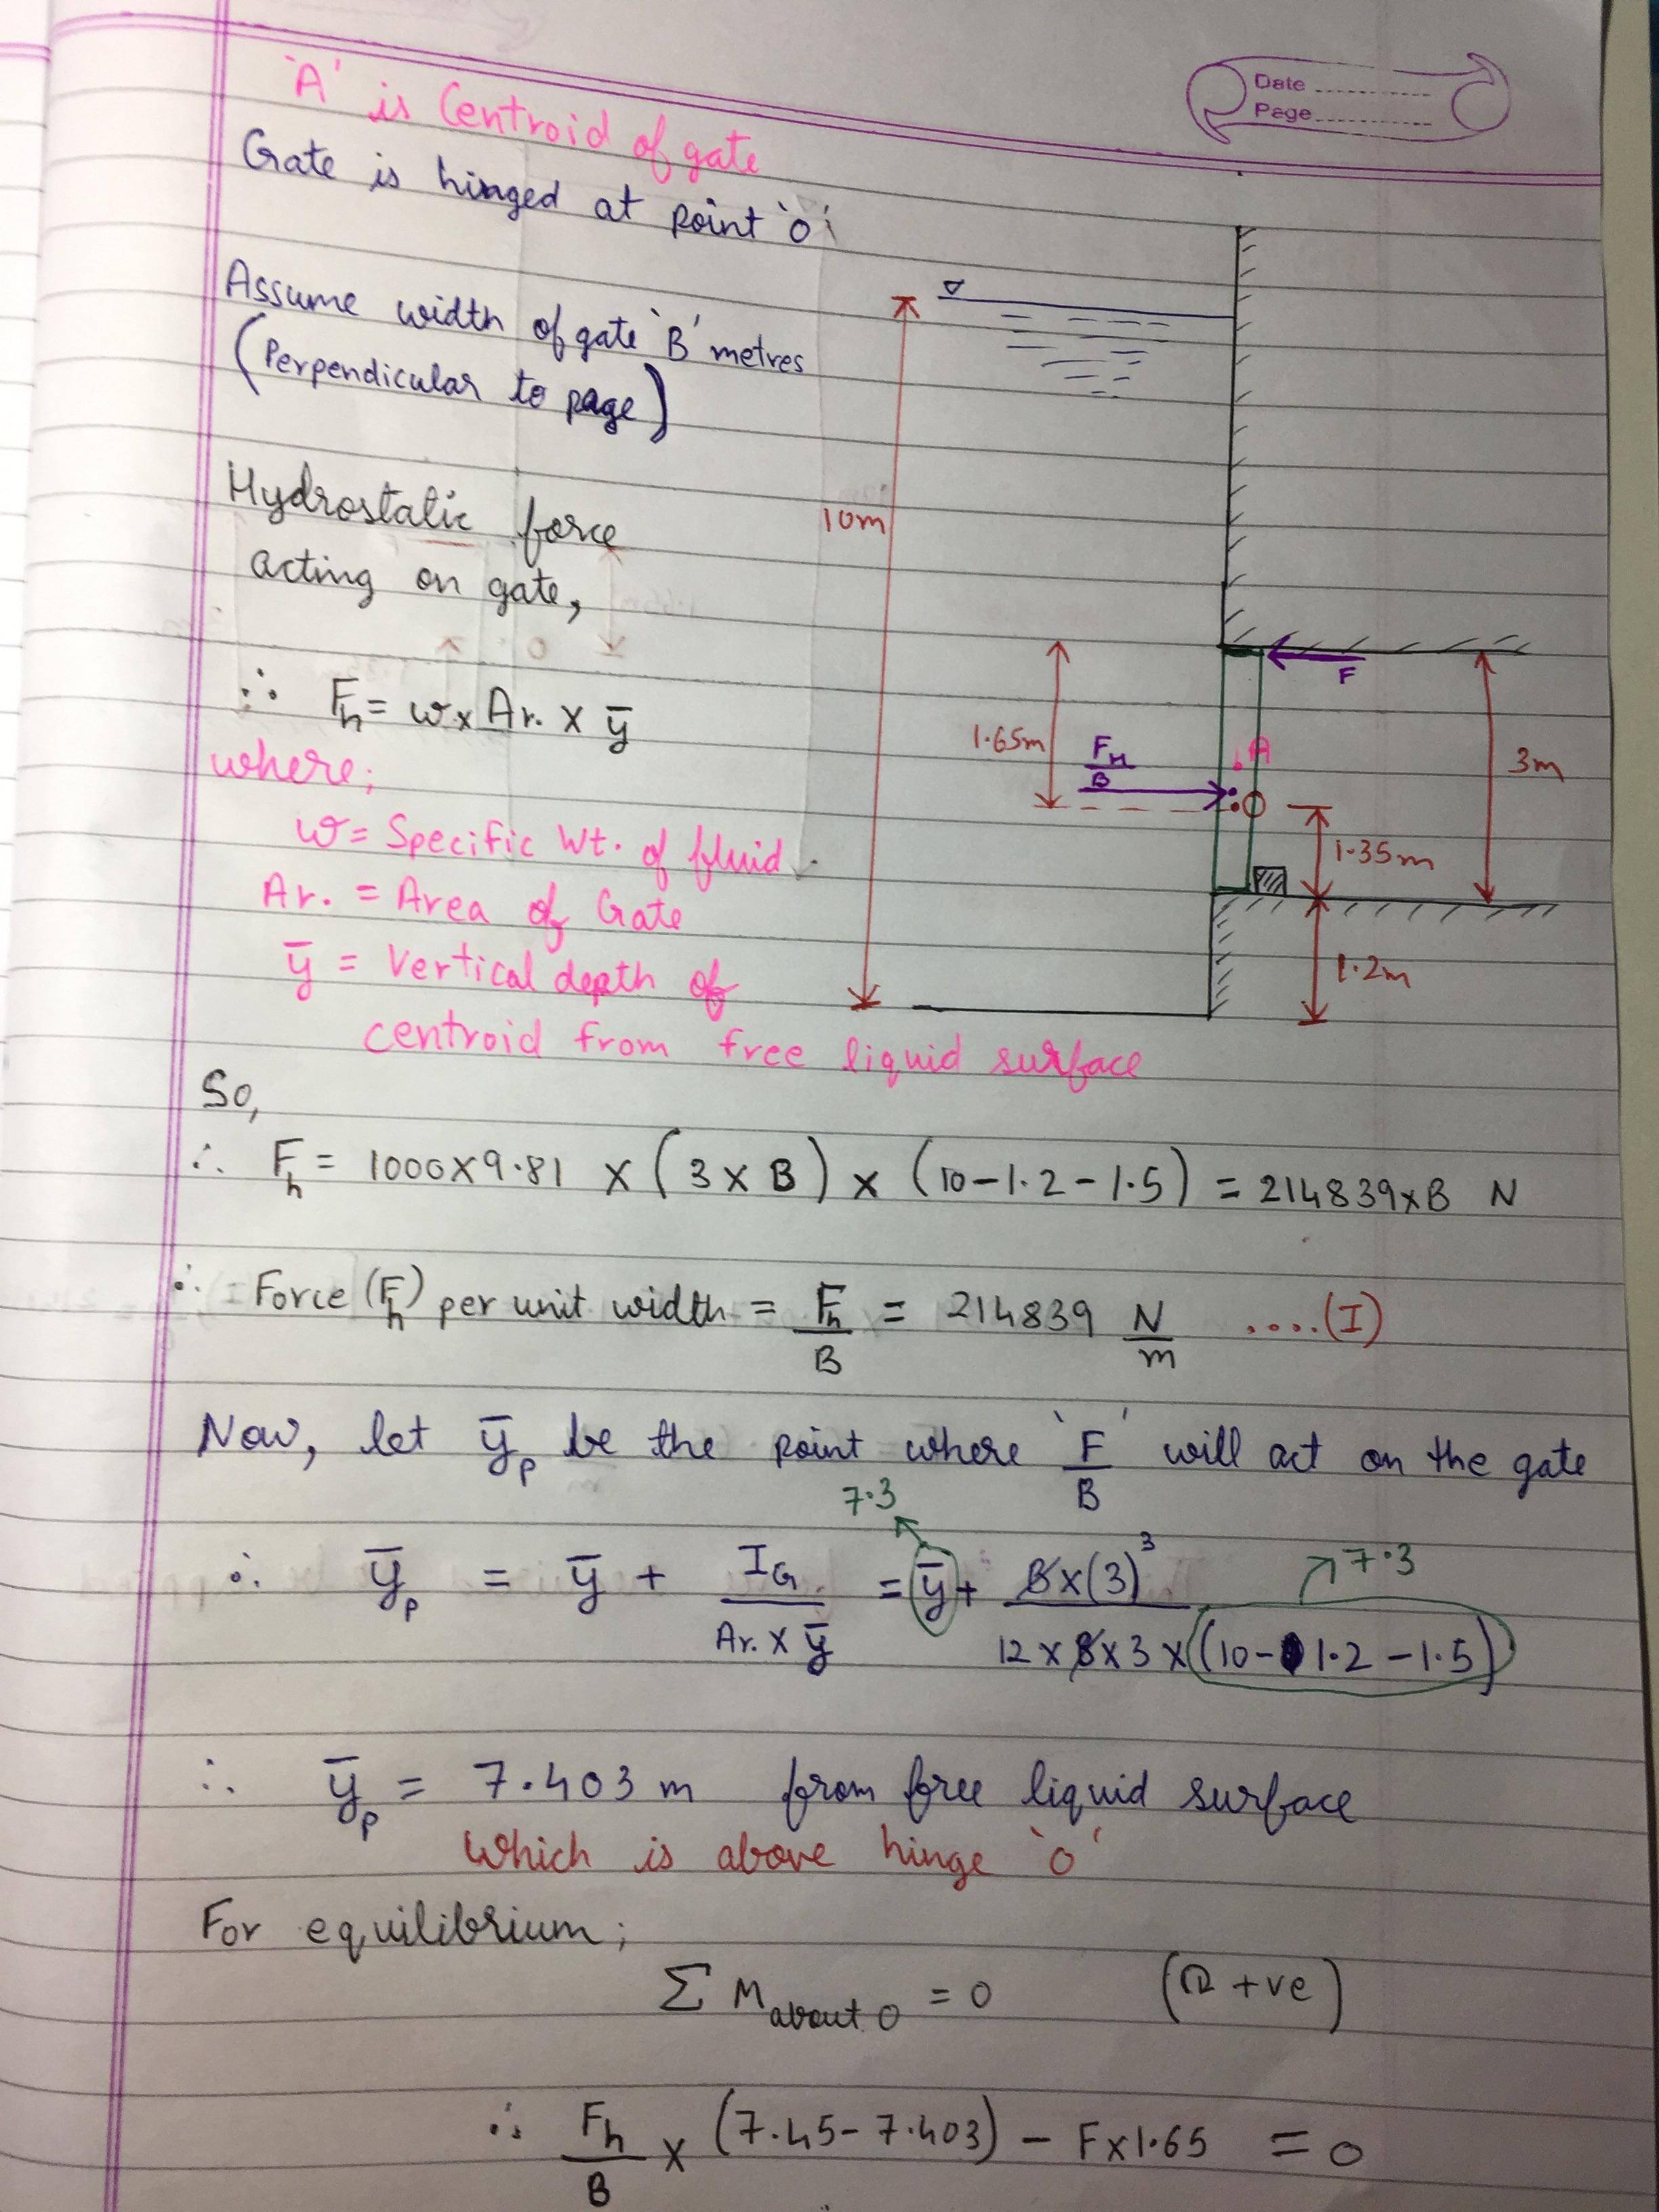 Date
Page
'A' is Centroid of gate
Gate is hinged at point 'o'
Assume width of gate 'B' metres
(Perpendicular to page)
Hydrostatic force
acting on gate,
∴ Fh = w x Ar. x ȳ
where;
w = Specific Wt. of fluid.
Ar. = Area of Gate
ȳ = Vertical depth of
centroid from free liquid surface
10m
F
1.65m
FH/B
A
O
3m
1.35m
1.2m
So,
∴ Fh = 1000x9.81 x (3 x B) x (10-1.2-1.5) = 214839xB N
∴ Force (Fh) per unit width = Fh/B = 214839 N/m ....(I)
Now, let ȳp be the point where 'F/B' will act on the gate
7.3
∴ ȳp = ȳ + IG/(Ar. x ȳ) = ȳ + Bx(3)³/(12 x B x 3 x (10-1.2-1.5))
7.3
∴ ȳp = 7.403 m from free liquid surface
which is above hinge 'o'
For equilibrium;
Σ M about O = 0 (↻ +ve)
∴ Fh/B x (7.45-7.403) - Fx1.65 = 0